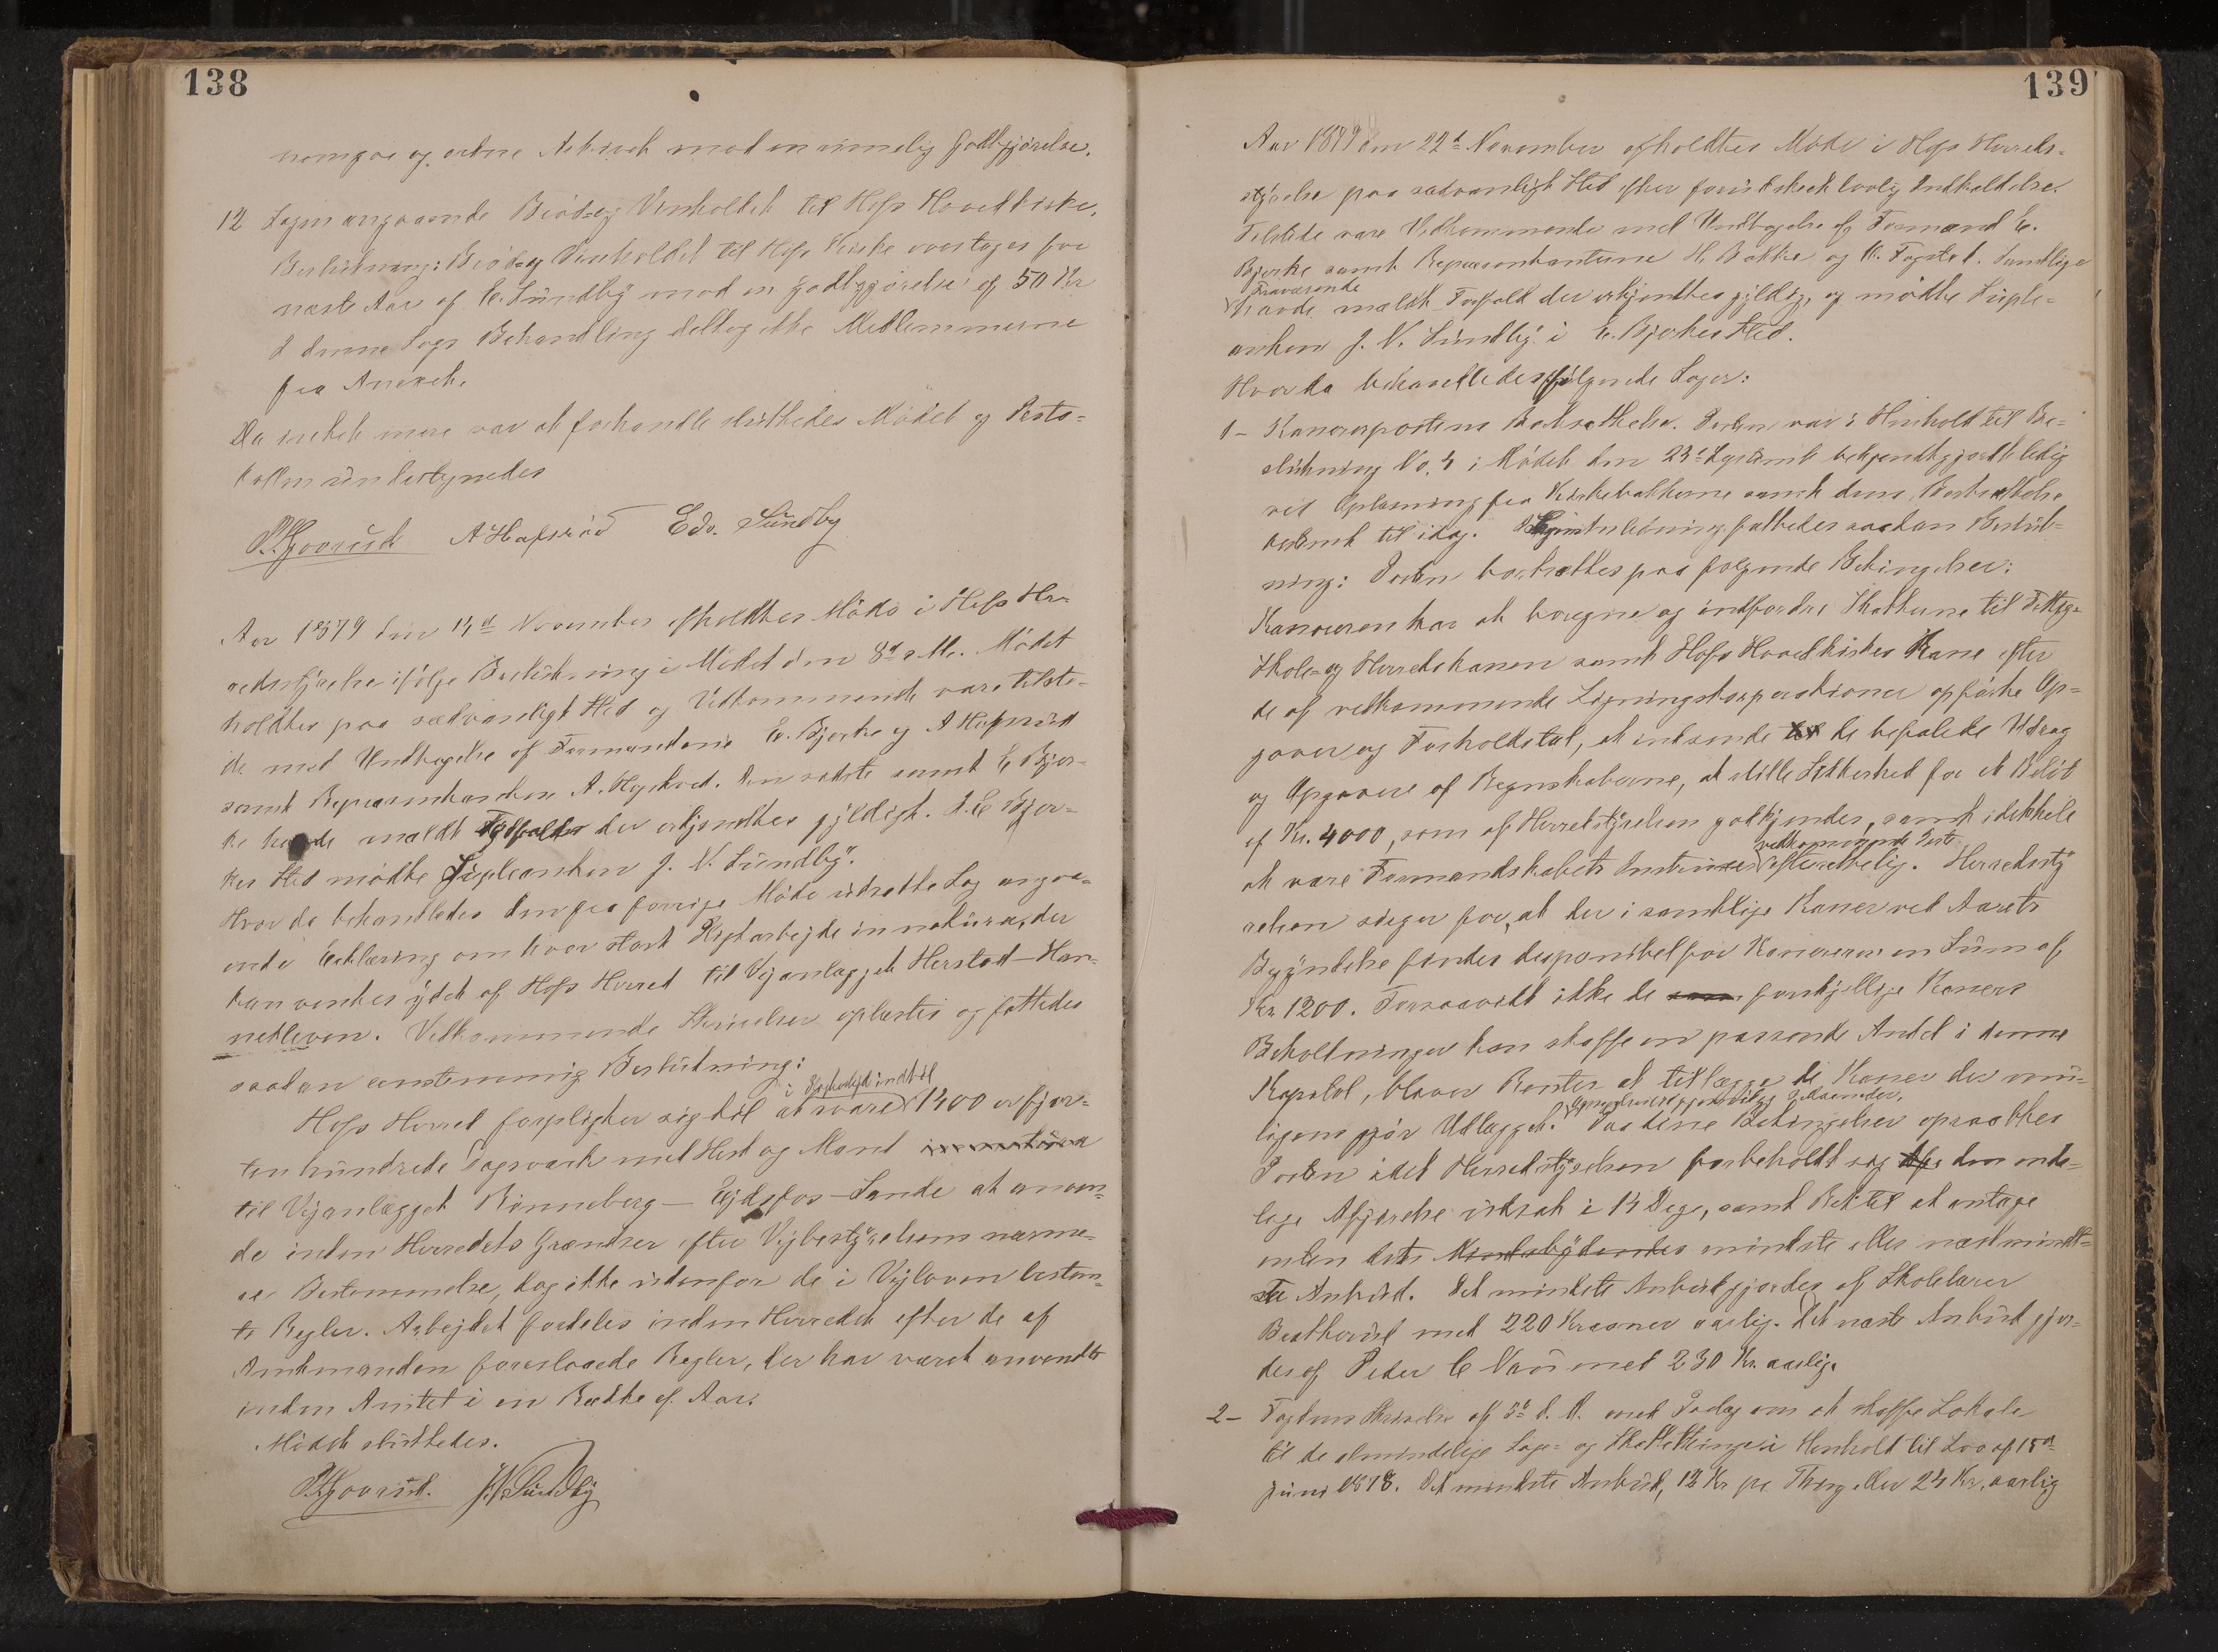 138
nemgaa og ordne Arkivet mod en rimelig Godtgjørelse.
12 Sagen angaaende Brød- og Vinholdet til Hofs Hovedkirke.
Beslutning: Brød- og Vinholdet til Hofs Kirke overtages for
næste Aar af E. Sundby mod en Godtgjørelse af 50 Kr
I denne Sags Behandling deltog ikke Medlemmerne
fra Annexet.
Da intet mere var at forhandle sluttedes Mødet og Proto=
kollen underskrevedes
P. Gjoorud A Hafsrød Edv. Sundby
Aar 1879 den 14d November afholdtes Møde i Hofs Her=
redsstyrelse ifølge Beslutning i Mødet den 8d s. M. Mødet
holdtes paa sædvanligt Sted og Vedkommende vare tilste=
de med Undtagelse af Formændene E. Bjerke og A Hafsrød
samt Repræsentanten A. Den sidste samt E Bjer=
ke havde meldt Forfald der erkjendtes gyldigt. I E Bjer=
kes Sted mødte Supleanten J. N. Sundby.
Hvor da behandledes den fra forrige Møde udsatte Sag angaa=
ende Erklæring om hvor stort Pligtarbejde in natura, der
kan ventes ydet af Hofs Herred til Vejanlægget Herstad – Han=
nekleven. Vedkommende Skrivelser oplæstes og fattedes
saadan eenstemmig Beslutning:
Hofs Herred forpligter sig til at svare i indtil 1400 er fjor=
ten hundrede Dagsværk med Hest og Mand in natura
til Vejanlægget Rønneberg – Ejdsfos – Sande at anven=
de inden Herredets Grændser efter Vejbestyrelsens nærme=
re Bestemmelse, dog ikke udenfor de i Vejloven bestem=
te Regler. Arbejdet fordeles inden Herredet efter de af
Amtmanden foreslaaede Regler, der har været anvendte
inden Amtet i en Række af Aar.
Mødet sluttedes.
P. Gjoorud. J. N. Sundby
139
Aar 1879 den 22d November afholdtes Møde i Hofs Herreds=
styrelse paa sædvanligt Sted efter forudskeet lovlig Indkaldelse.
Tilstede vare Vedkommende med Undtagelse af Formand E.
Bjerke samt Repræsentanterne H. Bakke og O. Fogstad. Samtlige
Fraværende
havde meldt Forfald der erkjendtes gyldig, og mødte Suple=
anten J. N. Sundby i E. Bjerkes Sted.
Hvor da behandledes følgende Sager:
1 – Kasererpostens Besættelse. Posten var i Henhold til Be=
slutning No. 4 i Mødet den 23d bekjendtgjort ledig
ved Oplæsning fra Kirkebakkerne samt dens Bortsættelse
bestemt til idag. fattedes saadan Beslut=
ning: Posten bortsættes paa følgende Betingelser:
Kasereren har at beregne og indfordre Skatterne til Fattig-
Skole- og Herredskassen samt Hofs Hovedkirkes Kasse efter
de af vedkommende Ligningskorporationer opførte Op=
gaver og Forholdstal, at indsende de befalede Udrag
og Opgaver af Regnskaberne, at stille Sikkerhed for et Beløb
af Kr. 4000, som af Herredstyrelsen godkjendes, samt idethele
vedkommende
at være Formandskabets efterrettelig. Herredssty
relsen sørger for, at der i samtlige Kasser ved Aarets
Begyndelse findes desponibel for Kasereren en Sum af
Kr. 1200. Forsaavidt ikke de forskjellige Kassers
Beholdninger kan skaffe en passende Andel i denne
Kapital, bliver Renter at tillægge de Kasser der mu=
ligens gjør Udlægget. Paa disse Betingelser opraabtes
Posten idet Herredsstyrelsen forbeholdt sig den ende=
lige Afgjørelse udsat i 14 Dage, samt Ret til at antage
enten det mindste eller næstmindt=
ste Anbud. Det mindste Anbud gjordes af Skolelærer
med 220 Kroner aarlig. Det næste Anbud gjor=
des af Peder C med 230 Kr. aarlig.
2 – Fogdens Skrivelse af 5d d. M. med Paalæg om at skaffe Lokale
til de almindelige Sage- og Skattething i Henhold til Lov af 15d
Juni 1878. Det mindste Anbud, 12 Kr pr Thing eller 24 Kr. aarlig